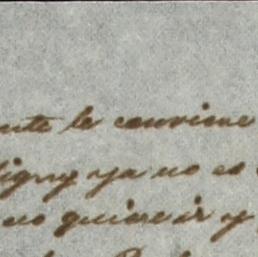 ente le conviene
ya no es
no quiere ir y